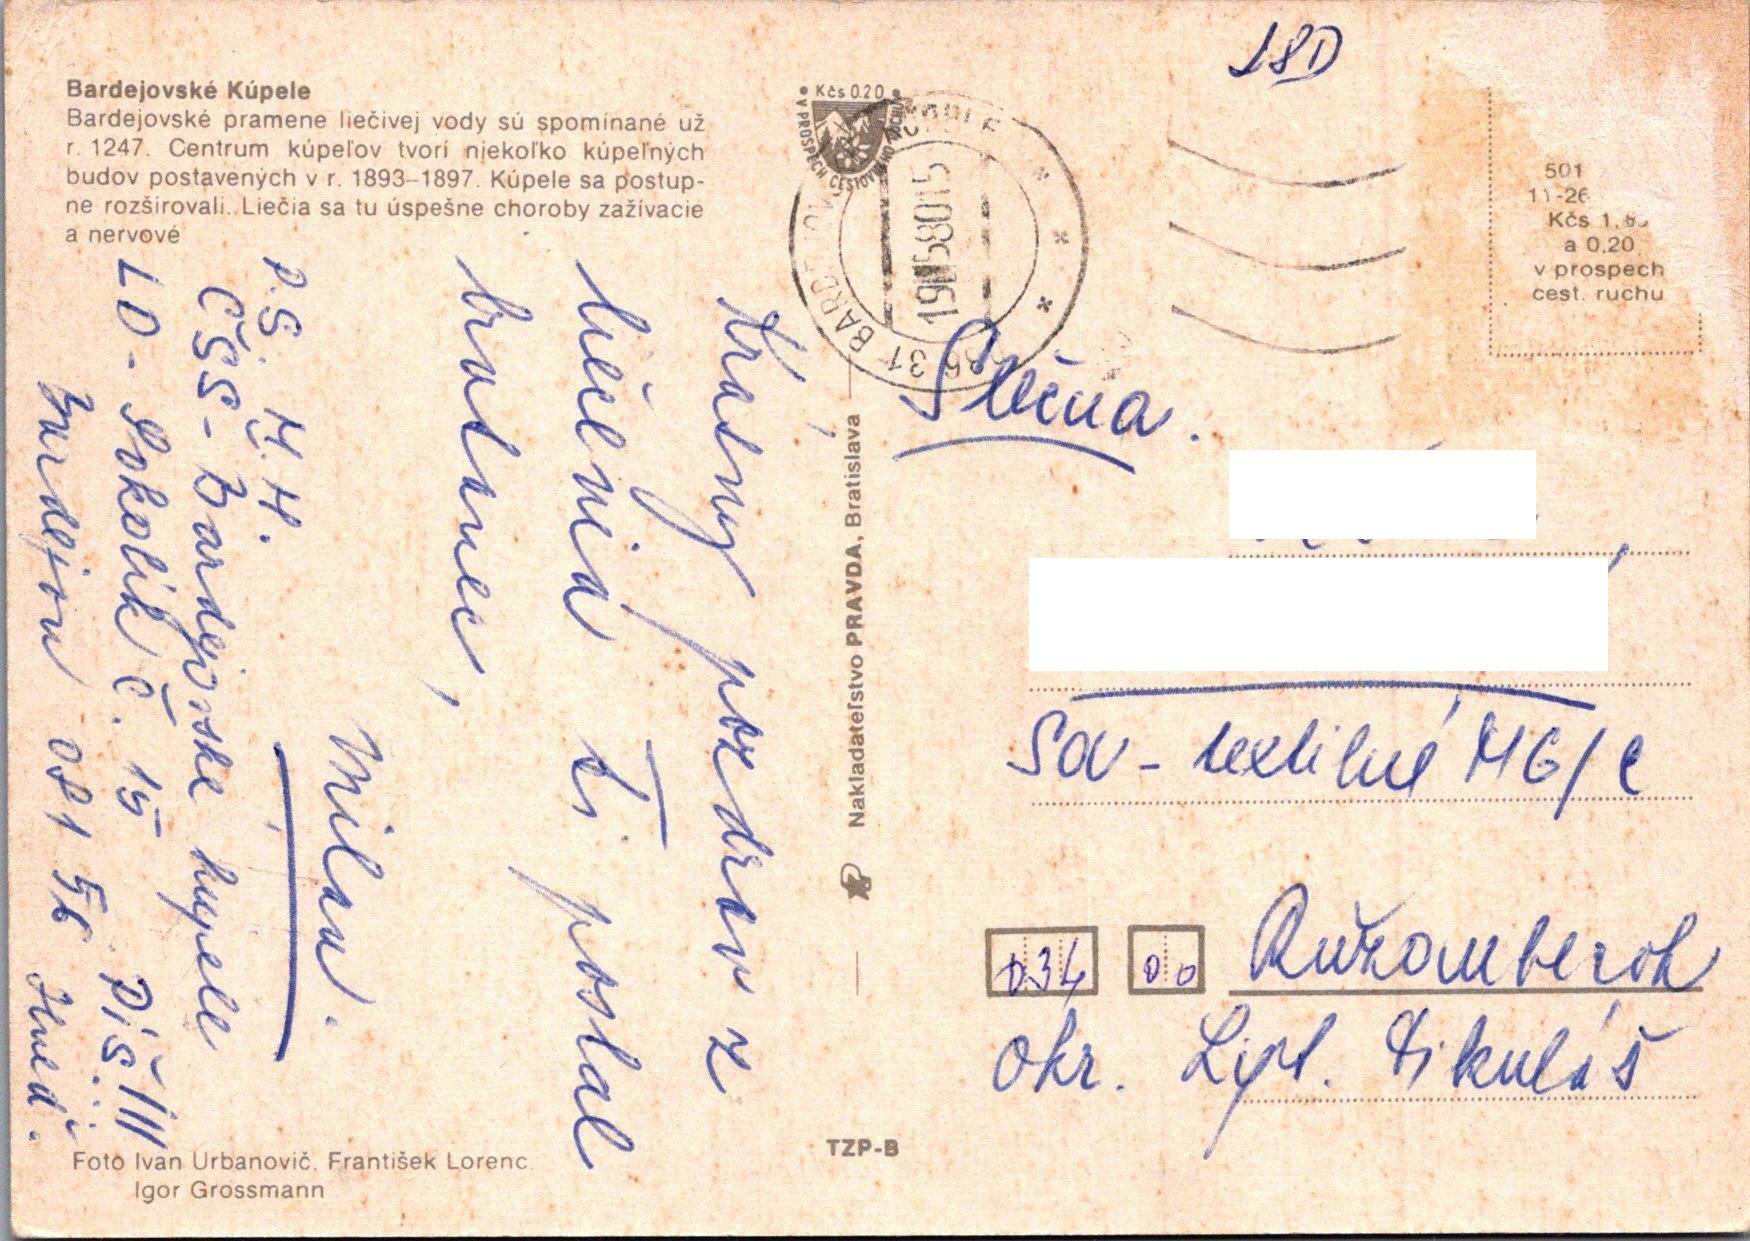 Bardejovské Kúpele
Bardejovské pramene liečivej vody sú spomínané už
r. 1247. Centrum kúpeľov tvorí niekoľko kúpeľných
budov postavených v r. 1893–1897. Kúpele sa postup-
ne rozširovali. Liečia sa tu úspešne choroby zažívacie
a nervové
Krásny pozdrav z
liečenia ti poslal
bratanec,
Milan.
P.S. M.H.
ČSS-Bardejovske kupele
LD- Sokolík č. 15
Bardejov 081 56
Foto Ivan Urbanovič, František Lorenc
Igor Grossmann
Kčs 0.20
V PROSPECH CESTOVNÉHO RUCHU
086 31 BARDEJOV
Nakladateľstvo PRAVDA, Bratislava
TZP-B
501
11-26
Kčs 1,80
a 0.20
v prospech
cest. ruchu
Slečna.
Sou - textilné MG/C
034 00 Ružomberok
okr. Lipt. Mikuláš